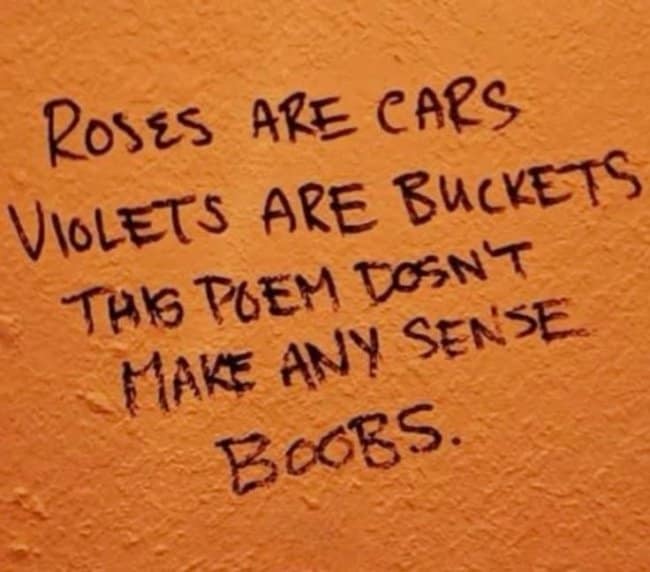 ROSES ARE CARS
VIOLETS ARE BUCKETS
THIS POEM DOSN'T
MAKE ANY SENSE
BOOBS.